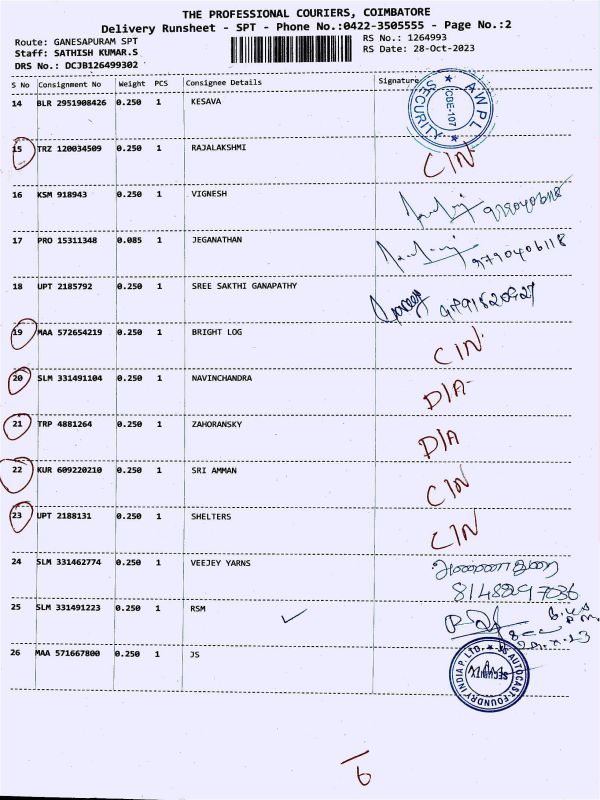 THE PROFESSIONAL COURIERS, COIMBATORE
Delivery Runsheet - SPT - Phone No.:0422-3505555 - Page No.:2
Route: GANESAPURAM SPT RS No.: 1264993
Staff: SATHISH KUMAR.S RS Date: 28-Oct-2023
DRS No.: DCJB126499302
S No Consignment No Weight PCS Consignee Details Signature
14 BLR 2951908426 0.250 1 KESAVA AWPL CBE-107 SECURITY
15 TRZ 120034509 0.250 1 RAJALAKSHMI CIN
16 KSM 918943 0.250 1 VIGNESH 9790406118
17 PRO 15311348 0.085 1 JEGANATHAN 9790406118
18 UPT 2185792 0.250 1 SREE SAKTHI GANAPATHY
19 MAA 572654219 0.250 1 BRIGHT LOG CIN
20 SLM 331491104 0.250 1 NAVINCHANDRA D/A
21 TRP 4881264 0.250 1 ZAHORANSKY D/A
22 KUR 609220210 0.250 1 SRI AMMAN CIN
23 UPT 2188131 0.250 1 SHELTERS CIN
24 SLM 331462774 0.250 1 VEEJEY YARNS
25 SLM 331491223 0.250 1 RSM
26 MAA 571667800 0.250 1 JS JS AUTOCAST FOUNDRY INDIA P. LTD. SECURITY
6